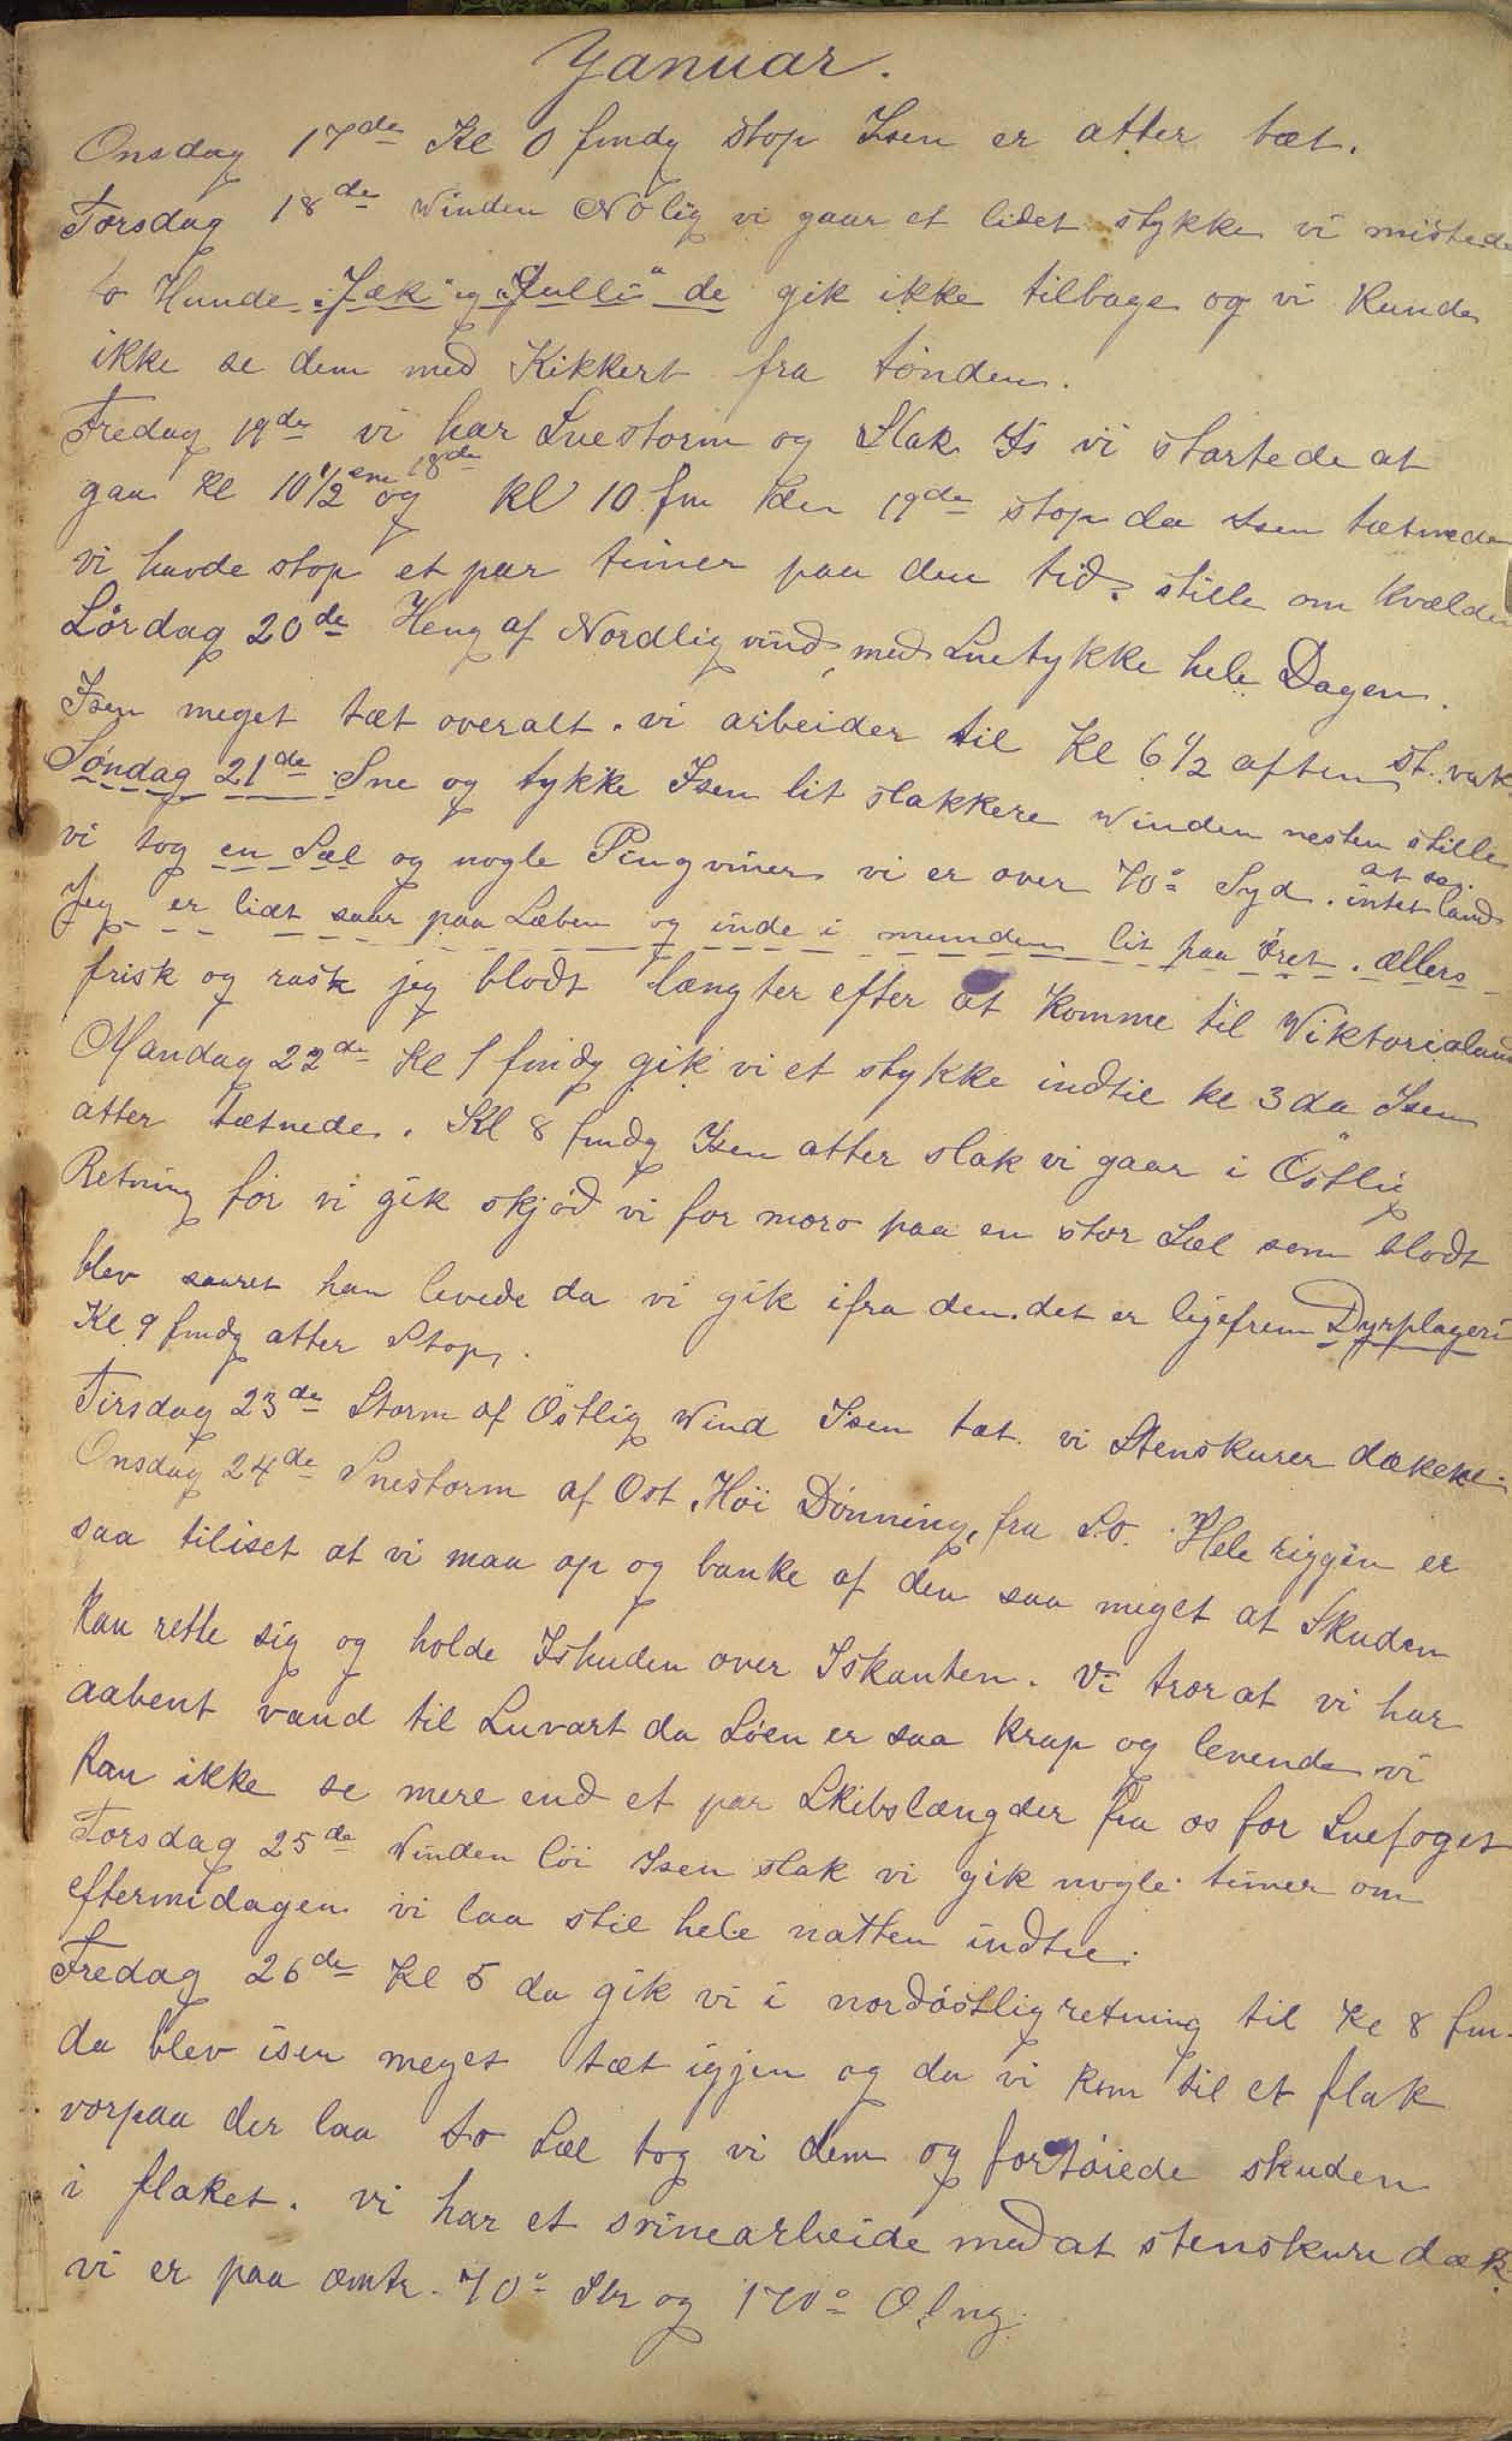 Januar.
Onsdag 17de Kl 0 fmdg stop Isen er atter tæt.
Torsdag 18de Winden NOlig vi gaar et lidet stykke vi mistede
to Hunde "Jæk" og "Julli" de gik ikke tilbage og vi kunde
ikke se dem med Kikkert fra tønden.
Fredag 19de vi har Snestorm og Slak Is vi startede at
gaa Kl 10 1/2 em 18de og Kl 10 fm den 19de stop da Isen tætnede
vi havde stop et par timer paa den tid. stille om kvælden
Lørdag 20de Heng af Nordlig vind med Snetykke hele Dagen.
Isen meget tæt overalt. vi arbeider til Kl 6 1/2 aften st. vak.
Søndag 21de Sne og tykke Isen lit slakkere Winden nesten stille
vi tog en Sæl og nogle Pingviner vi er over 70° Syd. intet land at se.
Jeg er lidt saar paa Læben og inde i munden lit paa øret. ællers
frisk og rask jeg blodt længter efter at komme til Wiktorialand
Mandag 22de Kl 1 fmdg gik vi et stykke indtil kl 3 da Isen
atter tætnede. Kl 8 fmdg Isen atter slak vi gaar i Östlig
Retning før vi gik skjød vi for moro paa en stor Sæl som blodt
blev saaret han levede da vi gik ifra den. det er ligefrem Dyrplageri
Kl 9 fmdg atter Stop.
Tirsdag 23de Storm af Östlig Wind Isen tæt. vi Stenskurer dækket.
Onsdag 24de Snestorm af Ost. Høi Dønning, fra S.O. Hele riggen er
saa tiliset at vi maa op og banke af den saa meget at Skuden
kan rette sig og holde Ishuden over Iskanten. Vi tror at vi har
aabent vand til Luvart da Søen er saa krap og levende vi
kan ikke se mere end et par Skibslængder fra os for Snefoget
Torsdag 25de Winden löi Isen slak vi gik nogle timer om
eftermidagen vi laa stil hele natten indtil.
Fredag 26de Kl 5 da gik vi i nordöstlig retning til Kl 8 fm.
da blev isen meget tæt igjen og da vi kom til et flak
vorpaa der laa to Sæl tog vi dem og fortöiede skuden
i flaket. vi har et svinearbeide med at stenskure dæk.
vi er paa omtr. 70° Sbr og 170° O lng.